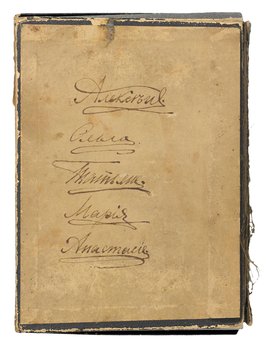 Алексѣй.
Ольга.
Татьяна.
Марія
Анастасія